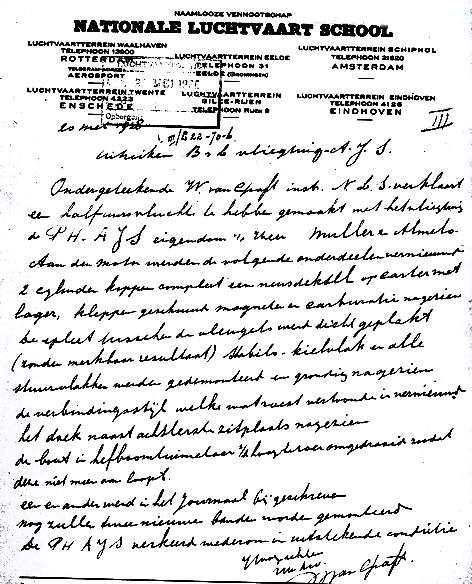 NAAMLOOZE VENNOOTSCHAP
NATIONALE LUCHTVAART SCHOOL
LUCHTVAARTTERREIN WAALHAVEN
TELEPHOON 13800
ROTTERDAM
TELEGRAM-ADRES
AEROSPORT
LUCHTVAARTTERREIN EELDE
TELEPHOON 31
EELDE (GRONINGEN)
LUCHTVAARTTERREIN SCHIPHOL
TELEPHOON 21820
AMSTERDAM
LUCHTVAARTTERREIN TWENTE
TELEPHOON 4323
ENSCHEDE
LUCHTVAARTTERREIN
GILZE-RIJEN
TELEPHOON RIJEN
LUCHTVAARTTERREIN EINDHOVEN
TELEPHOON 4126
EINDHOVEN
MEI
Opbergen
III
20 mei
uitreiken B v L vliegtuig A.J.S.
Ondergeteekende W van Graft instr. N.L.S. verklaart
een halfuursvlucht te hebben gemaakt met het vliegtuig
de PH-AJS eigendom heer Muller Almelo
Aan den motor werden de volgende onderdeelen vernieuwd
2 cylinder koppen compleet een neusdeksel op carter met
lager, kleppen geschuurd magneten en carburatie nagezien
De spleet tusschen de vleugels werd dicht geplakt
(zonder merkbaar resultaat) Stabilo- kielvlak en alle
stuurvlakken werden gedemonteerd en grondig nagezien
de verbindingsstijl welke wat roest vertoonde is vernieuwd
het doek naast achterste zitplaats nagezien
de bout in hefboom tuimelaar hoogteroer omgedraaid zoodat
deze niet meer aanloopt.
een en ander werd in het Journaal bij geschreven
nog zullen twee nieuwe banden worden gemonteerd
De PH AJS verkeerd wederom in uitstekende conditie
Hoogachtend
W van Graft.